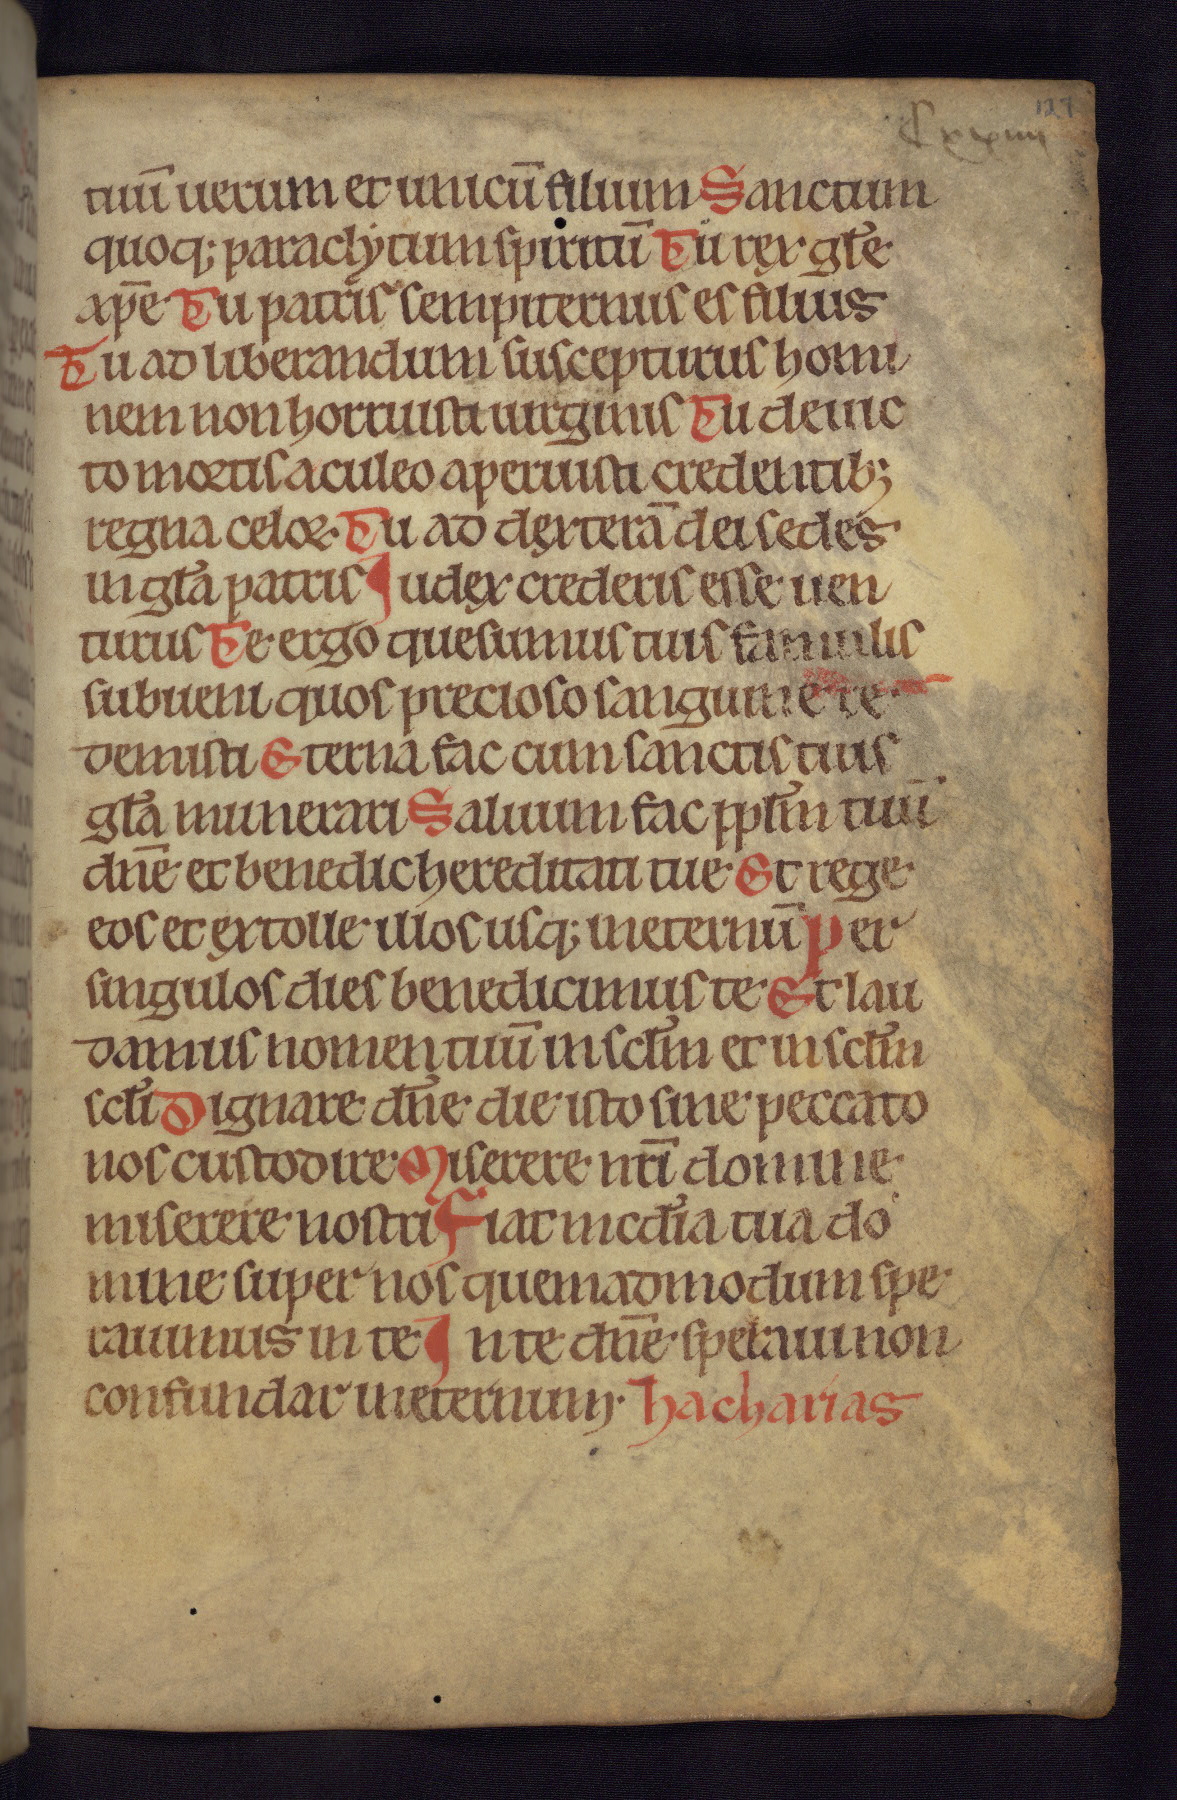 129
Cxxiiii
tuū uerum et unicū filium Sanctum
quoq; paraclytum spiritū Tu rex gl̄e
xp̄e Tu patris sempiternus es filius
Tu ad liberandum suscepturus homi
nem non horruisti uirginis Tu deuic
to mortis aculeo aperuisti credentib;
regna celoꝝ Tu ad dexterā dei sedes
in gl̄a patris Iudex crederis esse uen
turus Te ergo quesumus tuis famulis
subueni quos precioso sanguine re
demisti Eterna fac cum sanctis tuis
gl̄a munerari Saluum fac pplm̄ tuū
dn̄e et benedic hereditati tue Et rege
eos et extolle illos usq; ineternū Per
singulos dies benedicimus te Et lau
damus nomen tuū in sclm̄ et in sclm̄
scl̄i Dignare dn̄e die isto sine peccato
nos custodire Miserere nr̄i domine
miserere nostri Fiat mcd̄ia tua do
mine super nos quemadmodum spe
rauimus in te In te dn̄e speraui non
confundar ineternum. hacharias